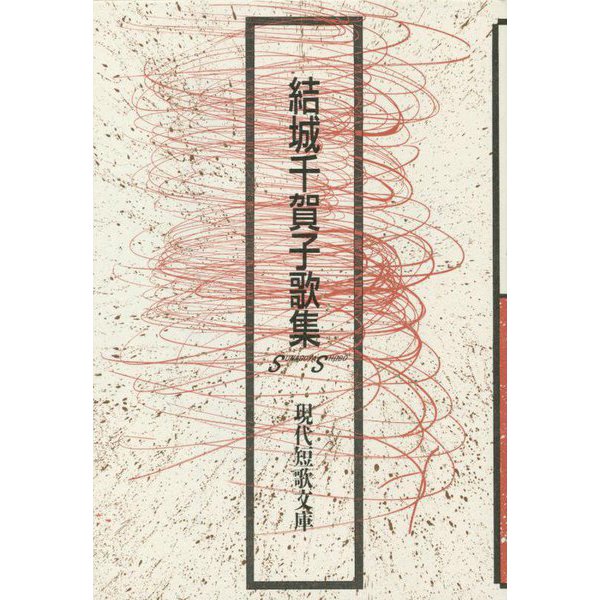 結城千賀子歌集
SUNAGOYA SHOBO
現代短歌文庫